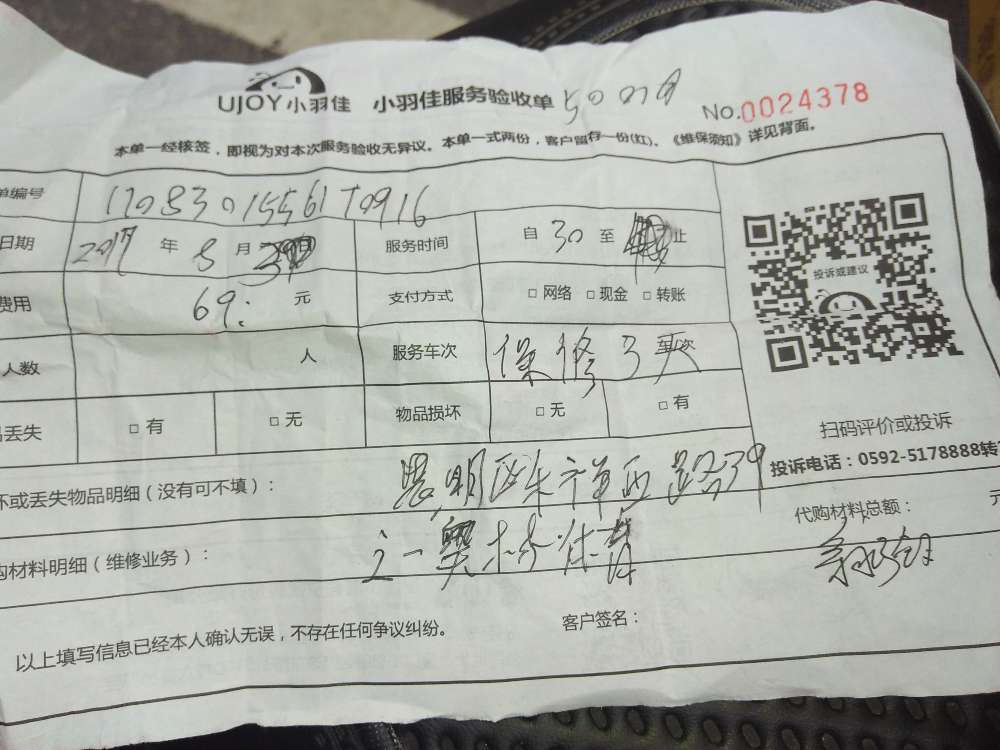 UJOY小羽佳 小羽佳服务验收单 No.0024378
本单一经核签，即视为对本次服务验收无异议。本单一式两份，客户留存一份(红)。《维保须知》详见背面。
单编号 1708301556170916
日期 2017 年 8 月 服务时间 自 30 至 止
费用 69: 元 支付方式 □ 网络 □ 现金 □ 转账
人数 人 服务车次 保修3 车次
丢失 □ 有 □ 无 物品损坏 □ 无 □ 有
投诉或建议
扫码评价或投诉
投诉电话：0592-5178888转
坏或丢失物品明细（没有可不填）： 思明区 祥西路39
代购材料总额： 元
购材料明细（维修业务）： 之一奥林体育
以上填写信息已经本人确认无误，不存在任何争议纠纷。 客户签名：